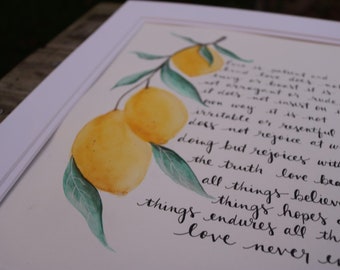 love is patient and
kind love does not
envy or boast it is
not arrogant or rude
it does not insist on
own way it is not
irritable or resentful
does not rejoice at w
doing but rejoices with
the truth love bea
all things believe
things hopes a
things endures all th
love never en